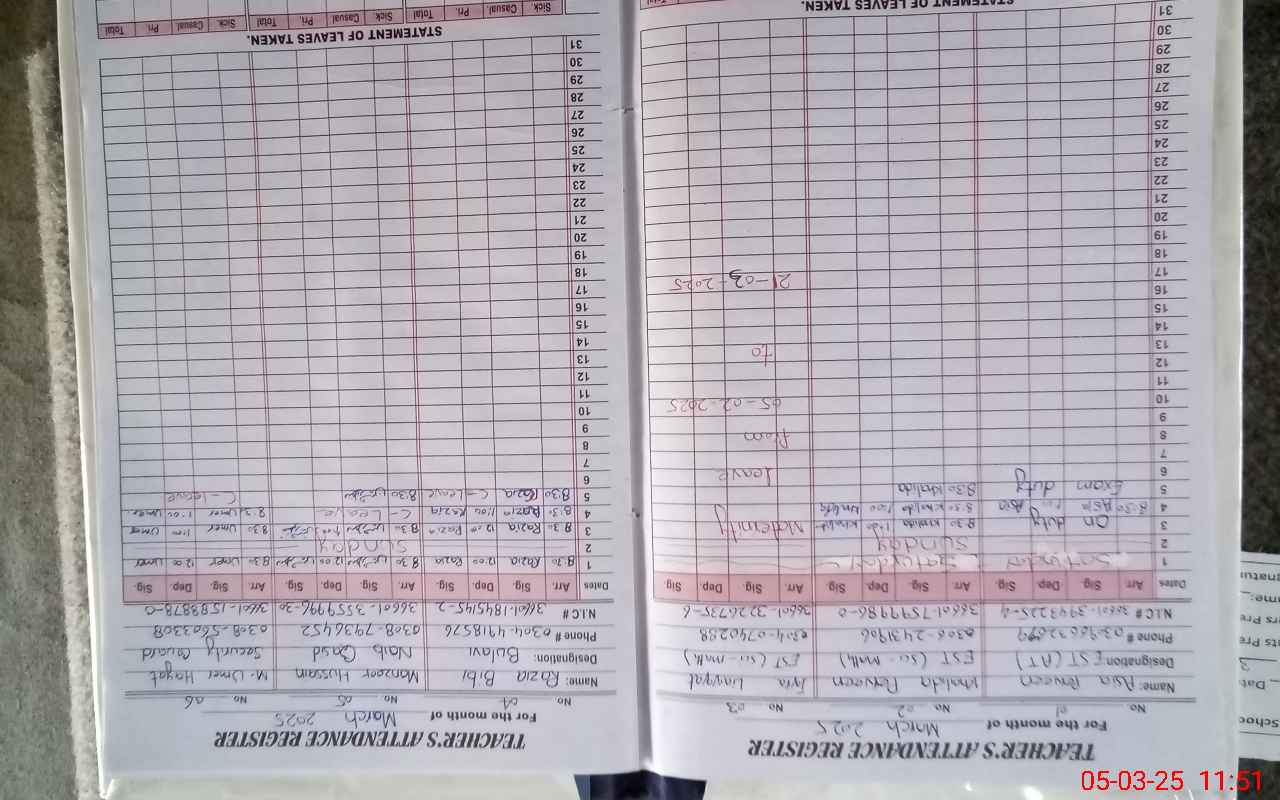 TEACHER'S ATTENDANCE REGISTER
For the month of March 2025
No 01 No 02 No 03
Name: Asia Parveen Khalida Parveen Liaqat
Designation: EST (AT) EST (Sci-Math) EST (Sci-math)
Phone # 0306-2431986 0304-0740288
N.I.C # 36601-7599986-0 36601-3726735-6
Dates Arr. Sig. Dep Sig. Arr. Sig. Dep Sig. Arr. Sig. Dep Sig
1 Saturday Saturday
2 Sunday
3 On duty 8:30 Khalida 1:00 Khalida Maternity
4 8:30 Asia 1:00 Asia 8:30 Khalida 1:00 Khalida
5 Exam duty 8:30 Khalida
6 leave
7
8 From
9
10 05-02-2025
11
12
13 to
14
15
16
17 21-03-2025
18
19
20
21
22
23
24
25
26
27
28
29
30
31
STATEMENT OF LEAVES TAKEN.
TEACHER'S ATTENDANCE REGISTER
For the month of March 2025
No 04 No 05 No 06
Name: Razia Bibi Manzoor Hussain M. Umer Hayat
Designation: Bulavi Naib Qasd Security Guard
Phone # 0304-4918576 0308-7936452 0308-5603308
N.I.C # 36601-1845145-2 36601-3559996-3 36601-1583878-0
Dates Arr. Sig. Dep Sig. Arr. Sig. Dep Sig. Arr. Sig. Dep Sig.
1 8:30 Razia 12:00 Razia 8:30 12:00 8:30 Umer 12:00 Umer
2 Sunday
3 8:30 Razia 12:00 Razia 8:30 8:30 Umer 1:00 Umer
4 8:30 Razia 1:00 Razia C-Leave 8:30 Umer 1:00 Umer
5 8:30 Razia C-Leave 8:30 C-leave
6
7
8
9
10
11
12
13
14
15
16
17
18
19
20
21
22
23
24
25
26
27
28
29
30
31
STATEMENT OF LEAVES TAKEN.
Sick Casual Pri. Total Sick Casual Pri. Total Sick Casual Pri. Total
05-03-25 11:51